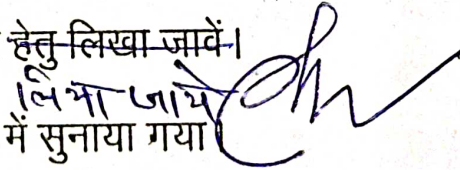 हेतु लिखा जावें।
लिया जाये
में सुनाया गया